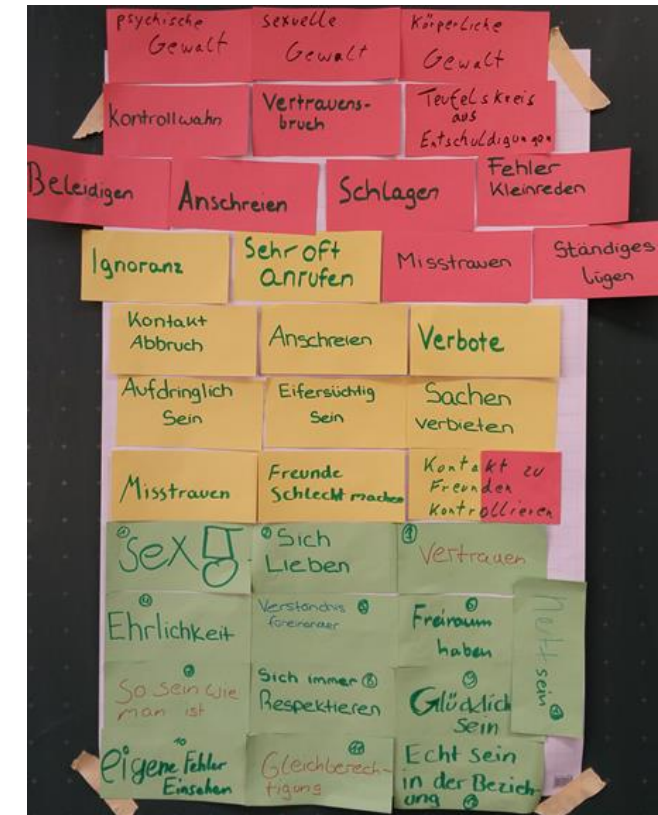 psychische
Gewalt
sexuelle
Gewalt
Körperliche
Gewalt
Kontrollwahn
Vertrauens-
bruch
Teufelskreis
aus
Entschuldigungen
Beleidigen
Anschreien
Schlagen
Fehler
Kleinreden
Ignoranz
Sehr oft
anrufen
Misstrauen
Ständiges
lügen
Kontakt
Abbruch
Anschreien
Verbote
Aufdringlich
Sein
Eifersüchtig
Sein
Sachen
verbieten
Misstrauen
Freunde
Schlecht machen
Kontakt zu
Freunden
Kontrollieren
Sex
Sich
Lieben
Vertrauen
Ehrlichkeit
Verständnis
füreinander
Freiraum
haben
nett sein
So sein wie
man ist
Sich immer
Respektieren
Glücklich
Sein
eigene Fehler
Einsehen
Gleichberech-
tigung
Echt sein
in der Bezieh-
ung